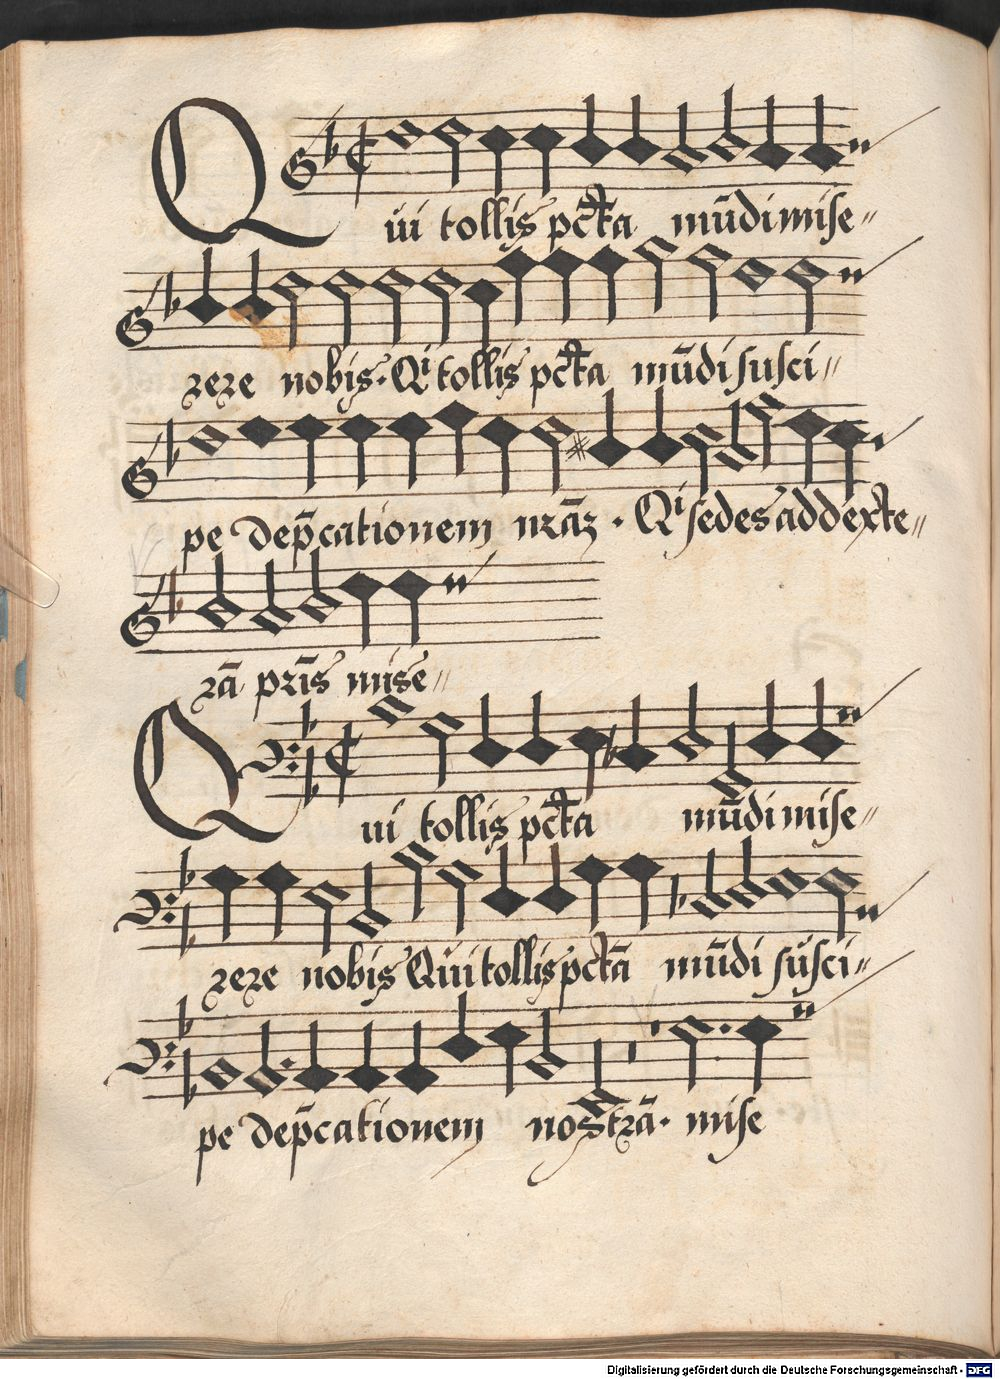 Qui tollis pctā mūdi mise〃
rere nobis. Qi tollis pctā mūdi susci〃
pe dep̄cationem nrāz. Qi sedes ad dexte〃
rā pr̄is mise〃
Qui tollis pctā mūdi mise〃
rere nobis Qui tollis pctā mūdi susci〃
pe dep̄cationem nostrā. mise
Digitalisierung gefördert durch die Deutsche Forschungsgemeinschaft - DFG